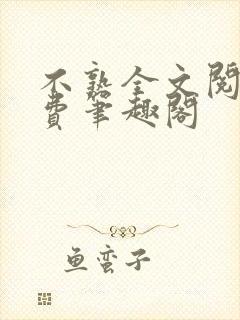 不熟全文阅
費笔趣阁
鱼蛮子